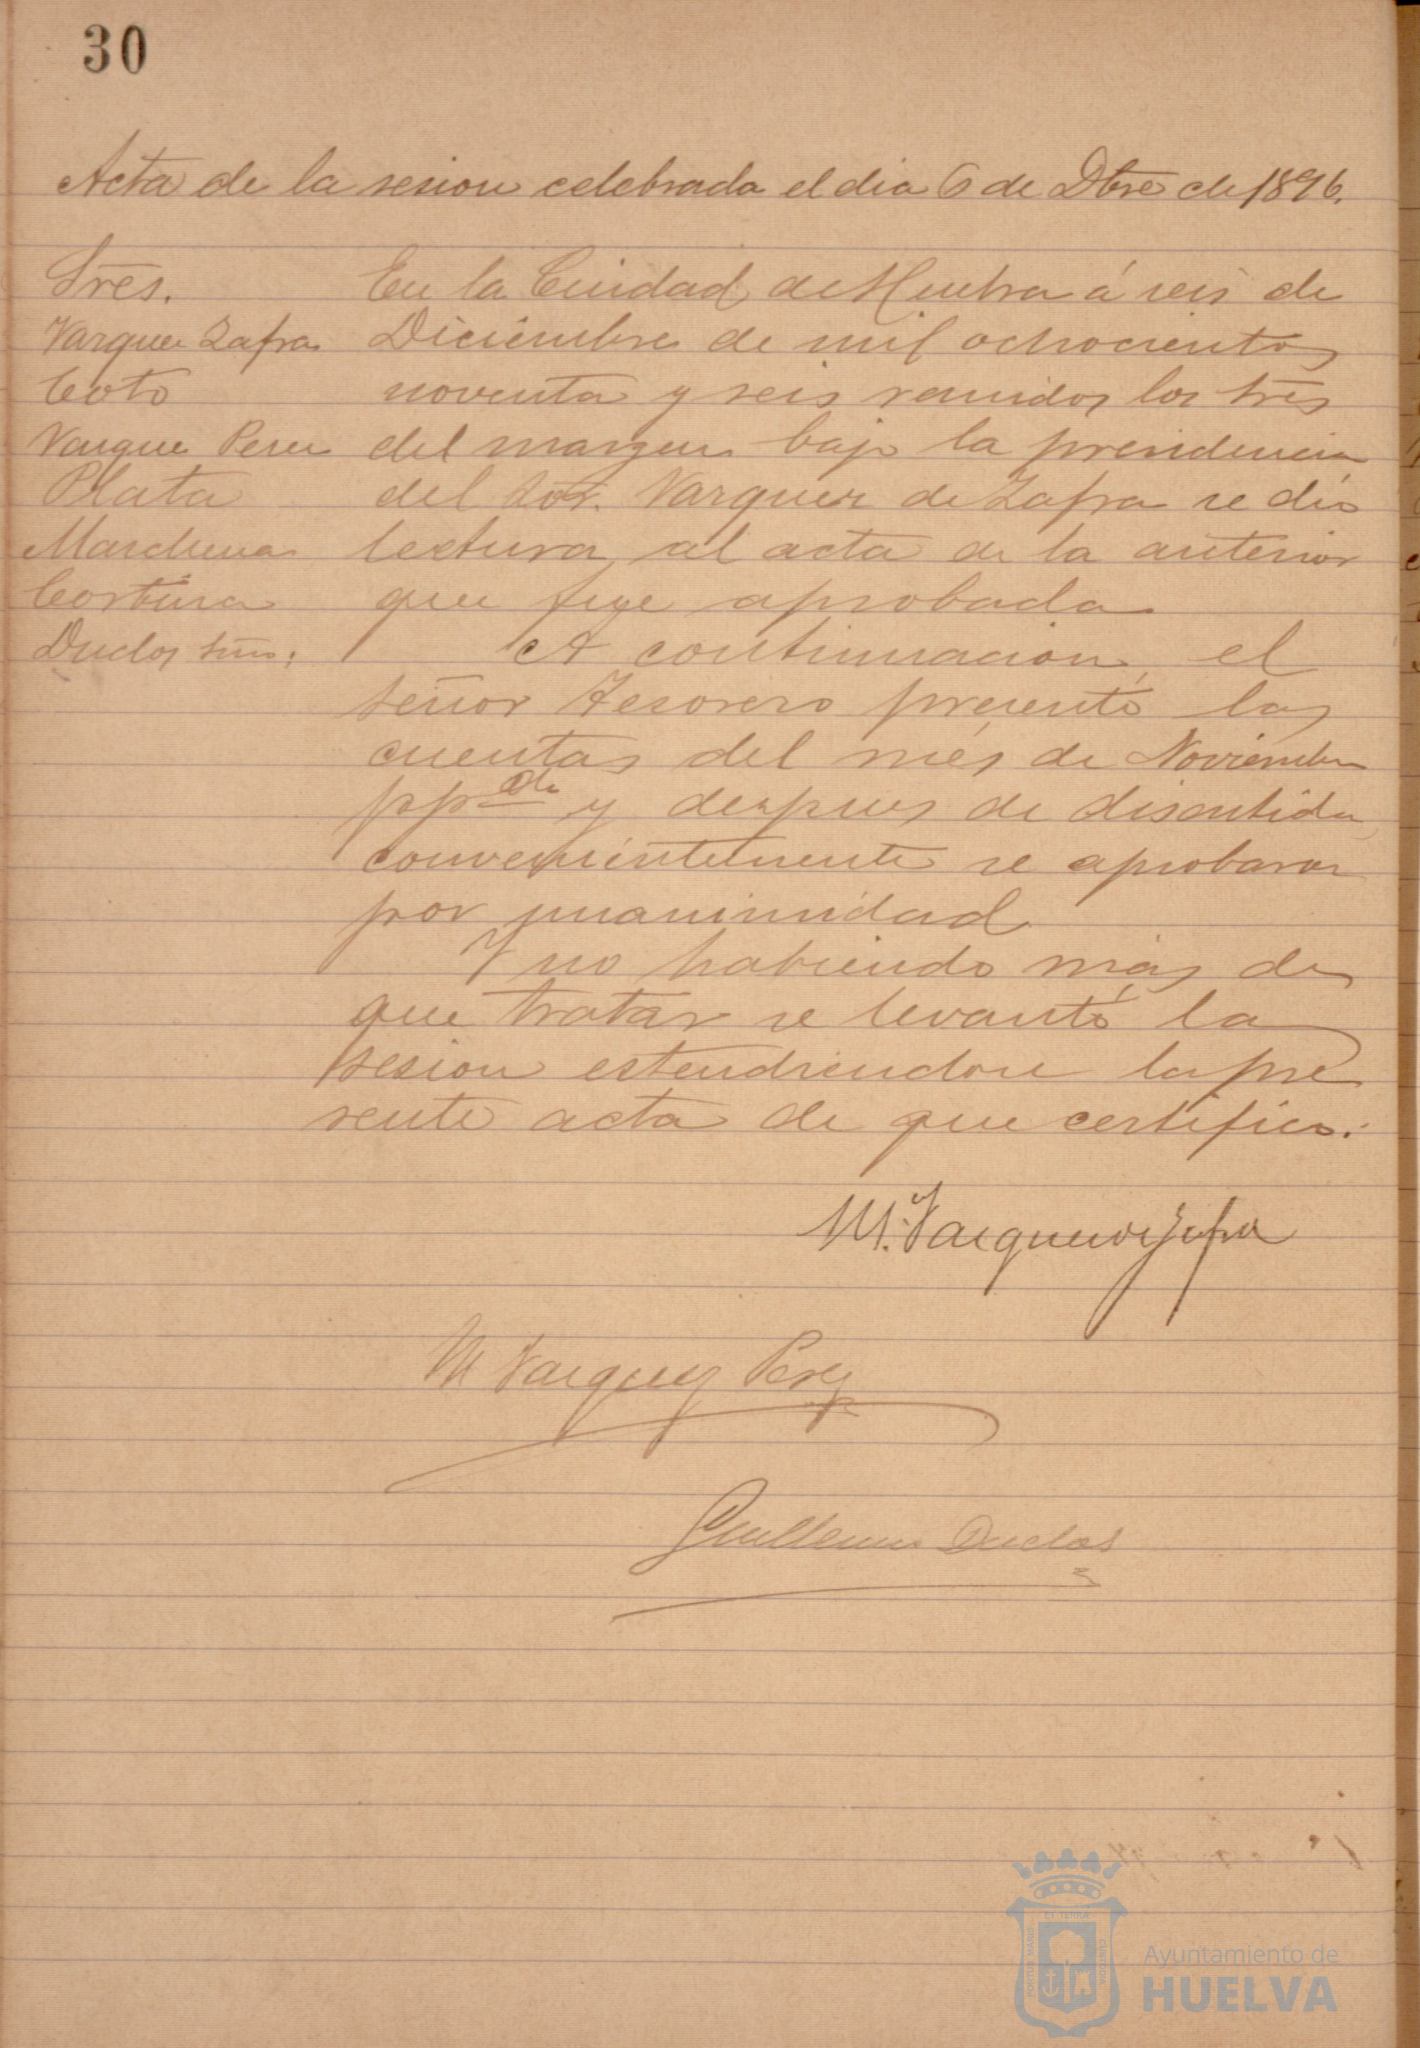 30
Acta de la sesion celebrada el dia 6 de Dbre de 1896.
Sres.
Varquez Zafra
Coto
Vazquez Perez
Plata
Marchena
Cortina
Duclos
En la Ciudad de Huelva á seis de
Diciembre de mil ochocientos
noventa y seis reunidos los sres
del margen bajo la presidencia
del Sor. Vazquez de Zafra se dió
lectura al acta de la anterior
que fue aprobada
A continuacion, el
señor Tesorero presentó las
cuentas del més de Noviembre
pp do y despues de discutida
convenientemente se aprobaron
por unanimidad
Y no habiendo más de
que tratar se levantó la
sesion estendiendose la pre
sente acta de que certifico.
M. Vazquez de Zafra
M Vazquez Perez
Guillermo Duclos
PORTUS MARIS
ET TERRÆ
CUSTODIA
Ayuntamiento de
HUELVA